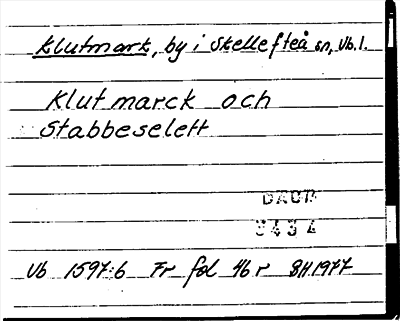 Klutmark, by i Skellefteå sn, Vb. l.
Klutmarck och
Stabbeselett
DAUB
3434
Vb 1597:6 Fr fol 46r BH1977